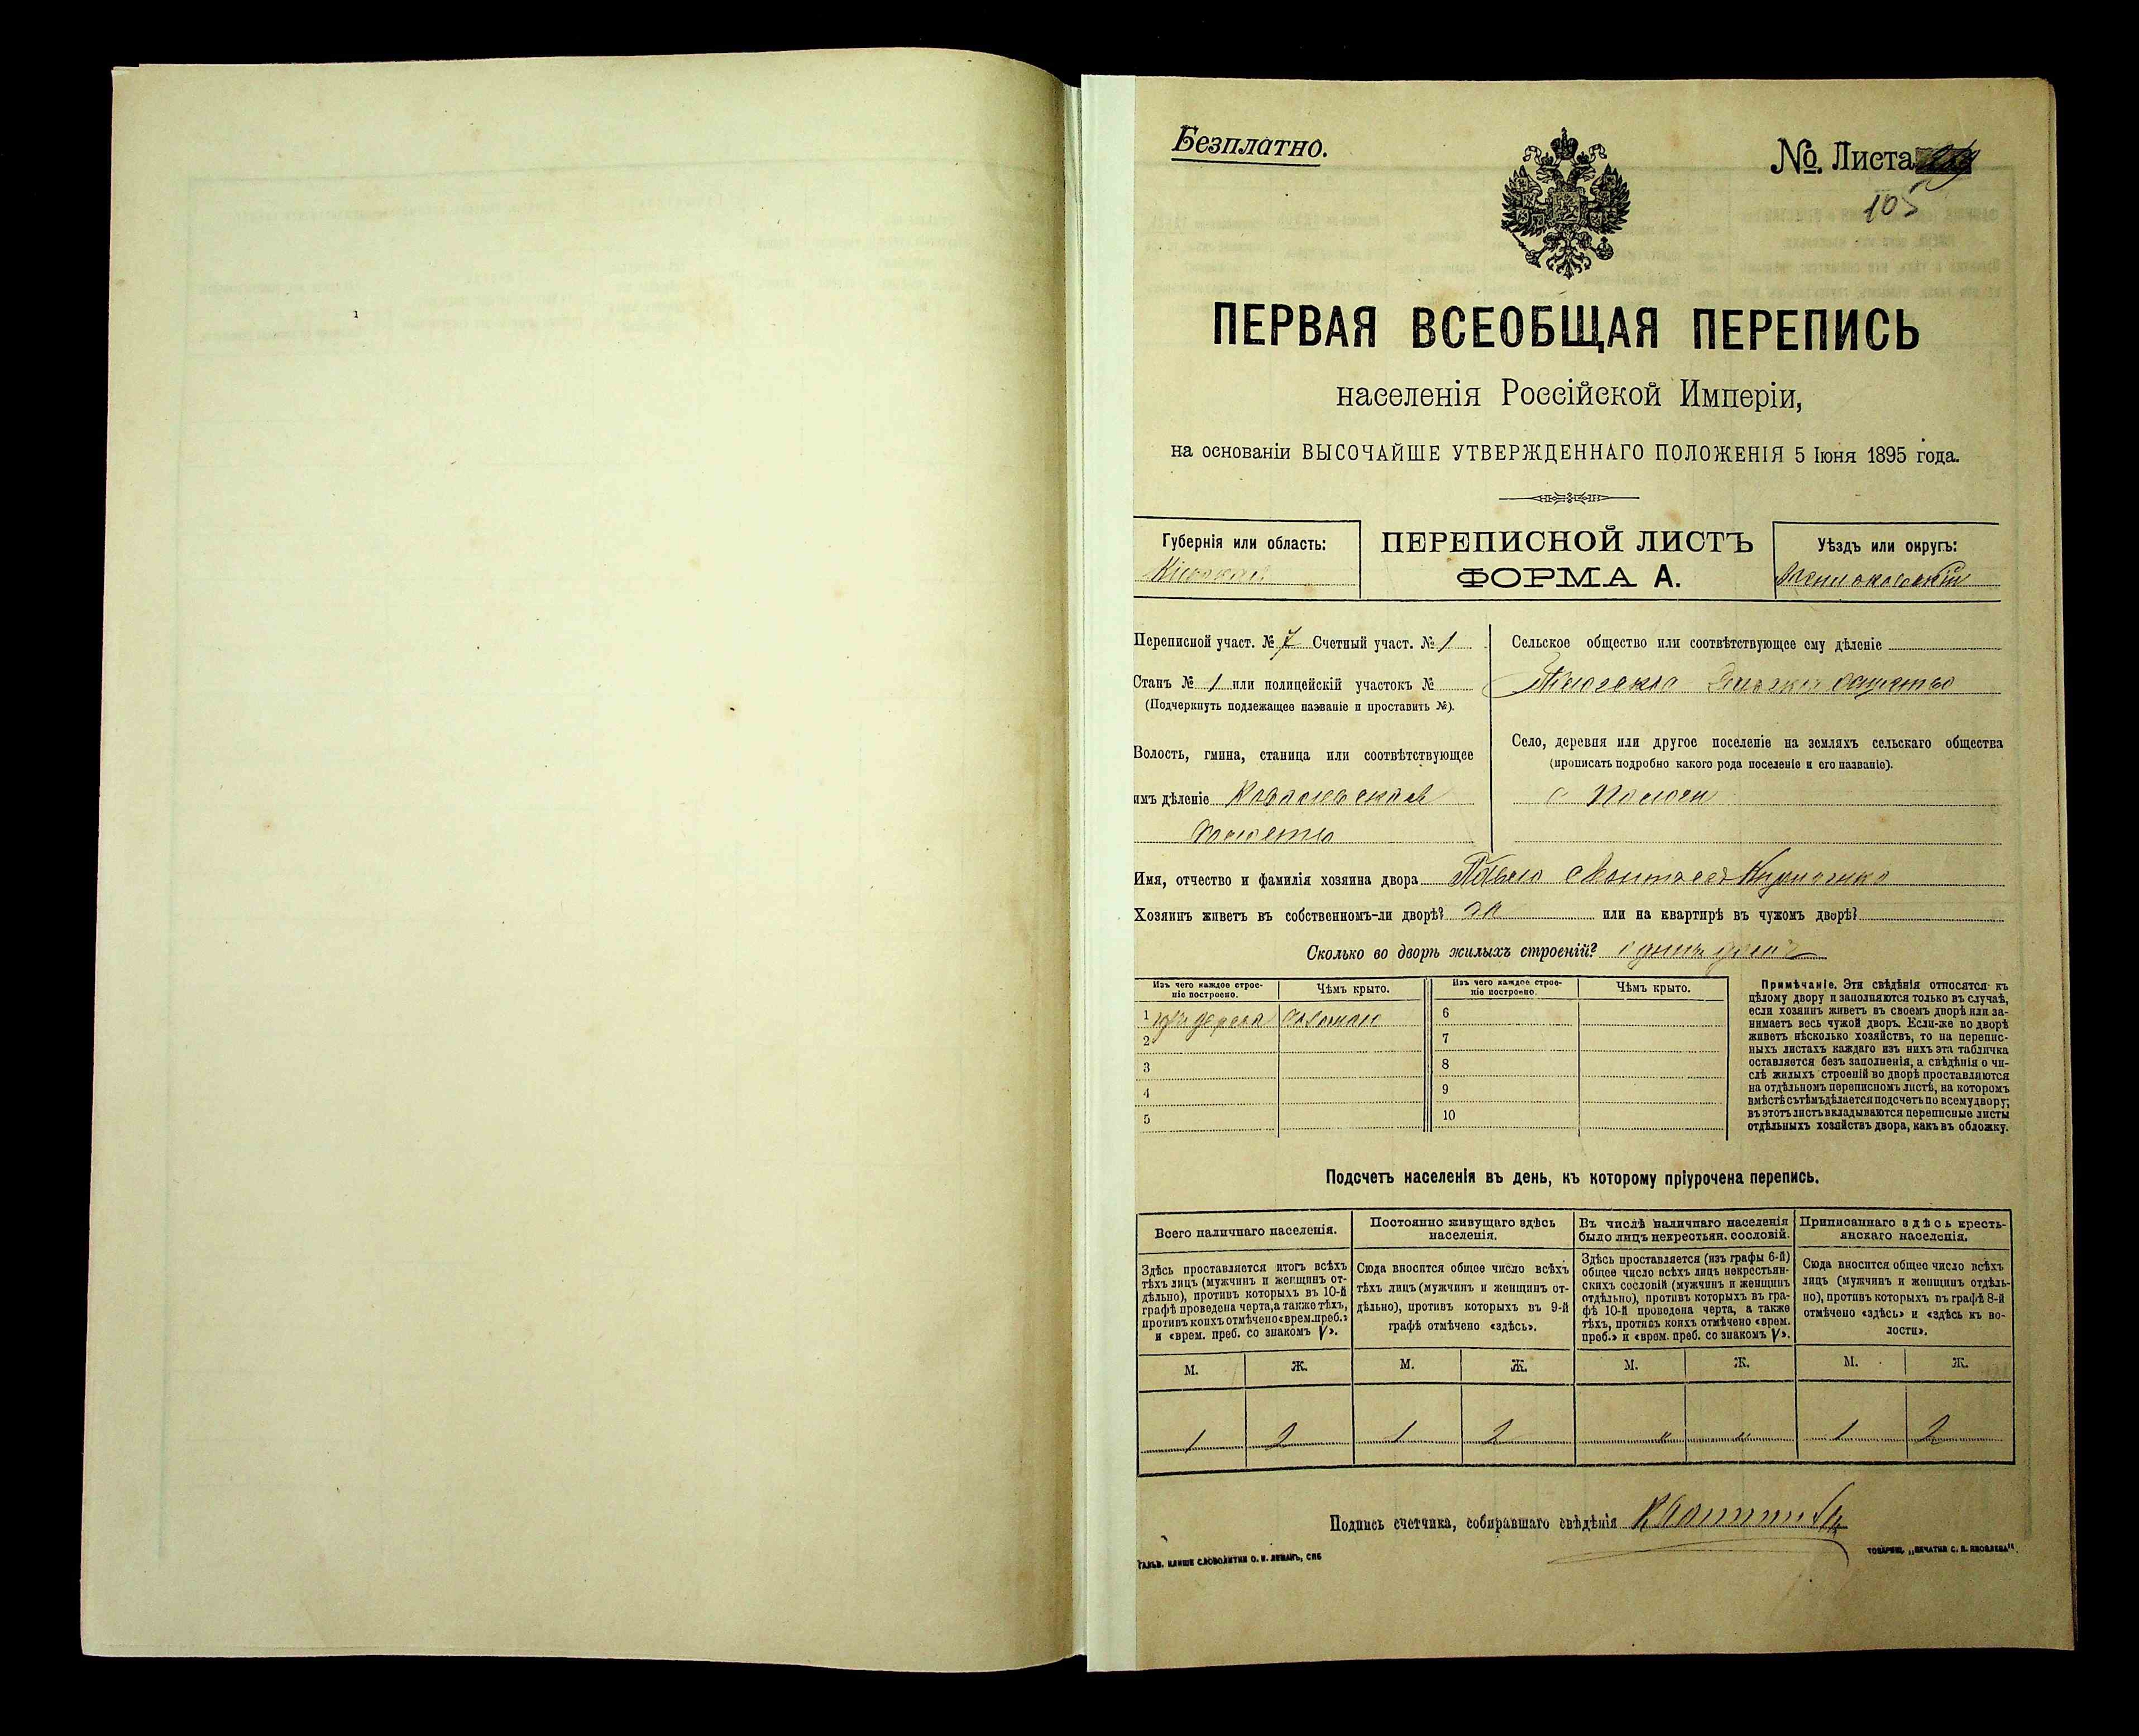 Безплатно.
№ Листа
105
ПЕРВАЯ ВСЕОБЩАЯ ПЕРЕПИСЬ
населенія Россійской Имперіи,
на основаніи ВЫСОЧАЙШЕ УТВЕРЖДЕННАГО ПОЛОЖЕНІЯ 5 Іюня 1895 года.
Губернія или область:
Кіевская
ПЕРЕПИСНОЙ ЛИСТЪ
ФОРМА А.
Уѣздъ или округъ:
Переписной участ. № 7 Счетный участ. № 1
Станъ № 1 или полицейскій участокъ №
(Подчеркнуть подлежащее названіе и проставить №).
Волость, гмина, станица или соотвѣтствующее
имъ дѣленіе
волость
Сельское общество или соотвѣтствующее ему дѣленіе
общество
Село, деревня или другое поселеніе на земляхъ сельскаго общества
(прописать подробно какого рода поселеніе и его названіе).
с
Имя, отчество и фамилія хозяина двора
Хозяинъ живетъ въ собственномъ-ли дворѣ? да или на квартирѣ въ чужомъ дворѣ?
Сколько во дворѣ жилыхъ строеній? одинъ домъ
Изъ чего каждое строе-
ніе построено.
Чѣмъ крыто.
Изъ чего каждое строе-
ніе построено.
Чѣмъ крыто.
1 изъ дерева соломою
2
3
4
5
6
7
8
9
10
Примѣчаніе. Эти свѣдѣнія относятся къ
цѣлому двору и заполняются только въ случаѣ,
если хозяинъ живетъ въ своемъ дворѣ или за-
нимаетъ весь чужой дворъ. Если-же во дворѣ
живетъ нѣсколько хозяйствъ, то на перепис-
ныхъ листахъ каждаго изъ нихъ эта табличка
оставляется безъ заполненія, а свѣдѣнія о чи-
слѣ жилыхъ строеній во дворѣ проставляются
на отдѣльномъ переписномъ листѣ, на которомъ
вмѣстѣ съ тѣмъ дѣлается подсчетъ по всему двору;
въ этотъ листъ вкладываются переписные листы
отдѣльныхъ хозяйствъ двора, какъ въ обложку.
Подсчетъ населенія въ день, къ которому пріурочена перепись.
Всего наличнаго населенія.
Здѣсь проставляется итогъ всѣхъ
тѣхъ лицъ (мужчинъ и женщинъ от-
дѣльно), противъ которыхъ въ 10-й
графѣ проведена черта, а также тѣхъ,
противъ коихъ отмѣчено «врем. преб.»
и «врем. преб. со знакомъ V».
Постоянно живущаго здѣсь
населенія.
Сюда вносится общее число всѣхъ
тѣхъ лицъ (мужчинъ и женщинъ от-
дѣльно), противъ которыхъ въ 9-й
графѣ отмѣчено «здѣсь».
Въ числѣ наличнаго населенія
было лицъ некрестьян. сословій.
Здѣсь проставляется (изъ графы 6-й)
общее число всѣхъ лицъ некрестьян-
скихъ сословій (мужчинъ и женщинъ
отдѣльно), противъ которыхъ въ гра-
фѣ 10-й проведена черта, а также
тѣхъ, противъ коихъ отмѣчено «врем.
преб.» и «врем. преб. со знакомъ V».
Приписаннаго здѣсь кресть-
янскаго населенія.
Сюда вносится общее число всѣхъ
лицъ (мужчинъ и женщинъ отдѣль-
но), противъ которыхъ въ графѣ 8-й
отмѣчено «здѣсь» и «здѣсь въ во-
лости».
М. Ж. М. Ж. М. Ж. М. Ж.
1 2 1 2 " " 1 2
Подпись счетчика, собиравшаго свѣдѣнія
ГАЛЬВ. КЛИШЕ СЛОВОЛИТНИ О. И. ЛЕМАНЪ, СПБ
ТОВАРИЩ. „ПЕЧАТНЯ С. П. ЯКОВЛЕВА".